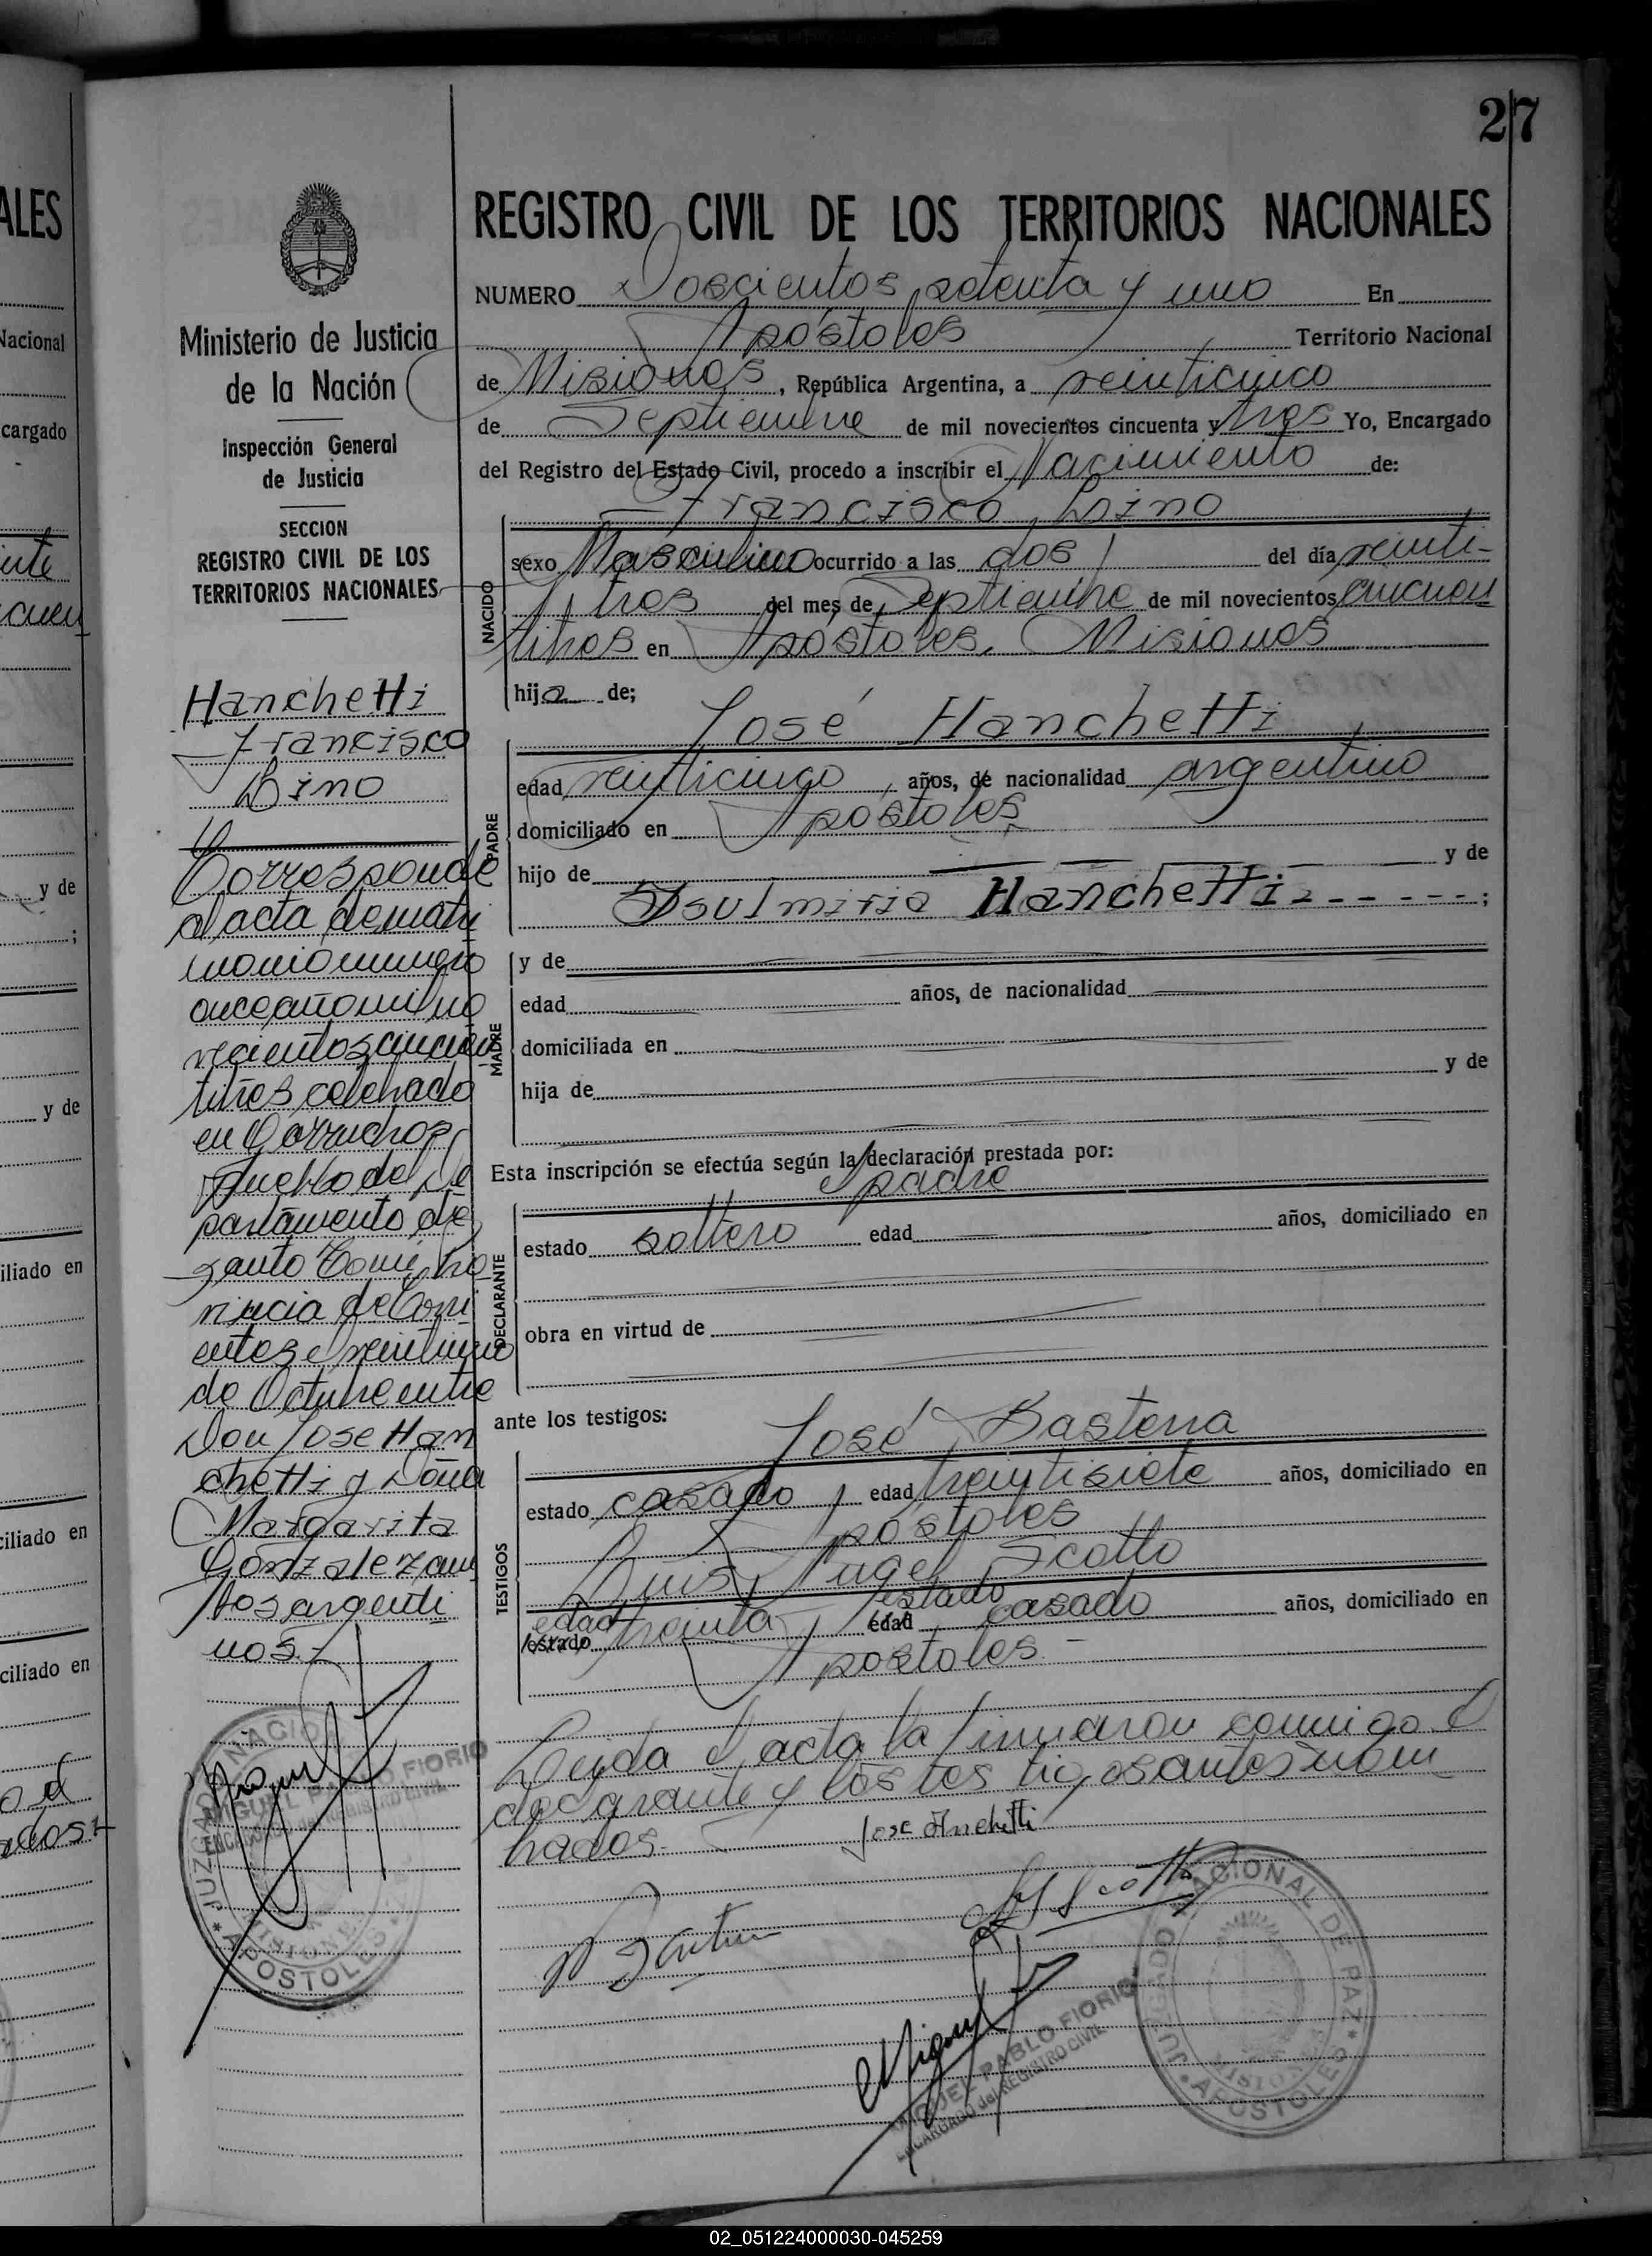 27
REGISTRO CIVIL DE LOS TERRITORIOS NACIONALES
NUMERO Doscientos setenta y uno En
Apóstoles Territorio Nacional
de Misiones, República Argentina, a veinticinco
de Septiembre de mil novecientos cincuenta y tres Yo, Encargado
del Registro del Estado Civil, procedo a inscribir el Nacimiento de:
Francisco Lino
NACIDO
sexo Masculino ocurrido a las dos del día veinti-
tres del mes de Septiembre de mil novecientos cincuen
titres en Apóstoles, Misiones
hijo de;
José Hanchetti
PADRE
edad veinticinco años, de nacionalidad argentino
domiciliado en Apóstoles
hijo de y de
Hanchetti - - - - - ;
MADRE
y de
edad años, de nacionalidad
domiciliada en
hija de y de
Esta inscripción se efectúa según la declaración prestada por:
padre
DECLARANTE
estado soltero edad años, domiciliado en
obra en virtud de
ante los testigos:
José Basterra
TESTIGOS
estado casado edad treintisiete años, domiciliado en
Apóstoles
Luis Angel Scotto
edad estado
estado treinta edad casado años, domiciliado en
Apóstoles -
Leida el acta la firmaron conmigo el
declarante y los testigos antes nom
brados.-
Jose Hanchetti
Scotto
MIGUEL PABLO FIORIO
ENCARGADO del REGISTRO CIVIL
JUZGADO NACIONAL DE PAZ * APOSTOLES * MISIONES
Ministerio de Justicia
de la Nación
Inspección General
de Justicia
SECCION
REGISTRO CIVIL DE LOS
TERRITORIOS NACIONALES
Hanchetti
Francisco
Lino
Corresponde
al acta de matri
monio numero
once año mil no
vecientos cincuen
titres celebrado
en Garruchos
pueblo del De
partamento de
Santo Tomé Pro
vincia de Corri
entes el veintiuno
de Octubre entre
Don Jose Han
chetti y Doña
Margarita
Gonzalez am
bos argenti
nos.-
MIGUEL PABLO FIORIO
ENCARGADO del REGISTRO CIVIL
JUZGADO NACIONAL
MISIONES
* APOSTOLES *
ALES
Nacional
cargado
y de
;
y de
iliado en
ciliado en
ciliado en
02_051224000030-045259